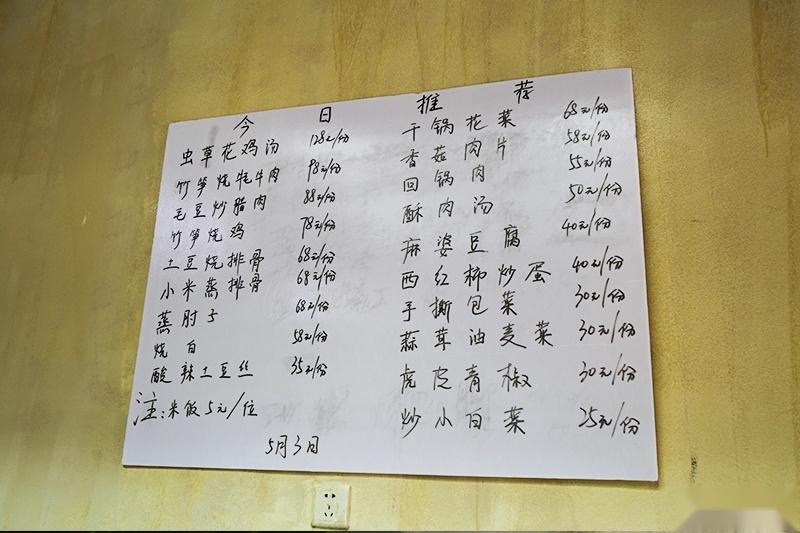 今日推荐
虫草花鸡汤 128元/份
竹笋烧牦牛肉 98元/份
毛豆炒腊肉 88元/份
竹笋烧鸡 78元/份
土豆烧排骨 68元/份
小米蒸排骨 68元/份
蒸肘子 68元/份
烧白 58元/份
酸辣土豆丝 35元/份
注:米饭5元/位
5月3日
干锅花菜 68元/份
香菇肉片 58元/份
回锅肉 55元/份
酥肉汤 50元/份
麻婆豆腐 40元/份
西红柿炒蛋 40元/份
手撕包菜 30元/份
蒜茸油麦菜 30元/份
虎皮青椒 30元/份
炒小白菜 25元/份